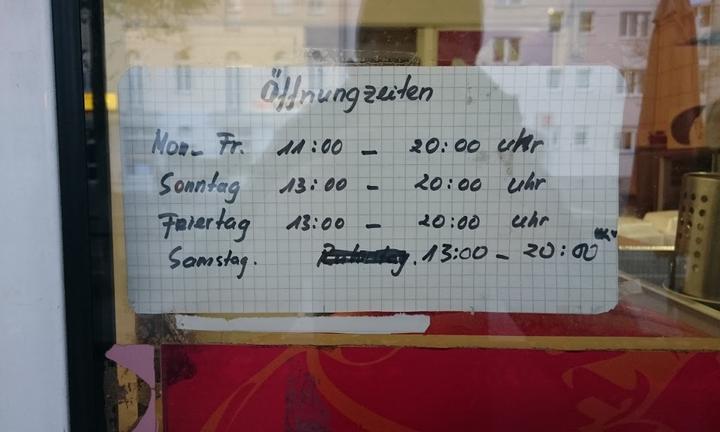 Öffnungzeiten
Mon- Fr. 11:00 - 20:00 uhr
Sonntag 13:00 - 20:00 uhr
Feiertag 13:00 - 20:00 uhr
Samstag. 13:00 - 20:00